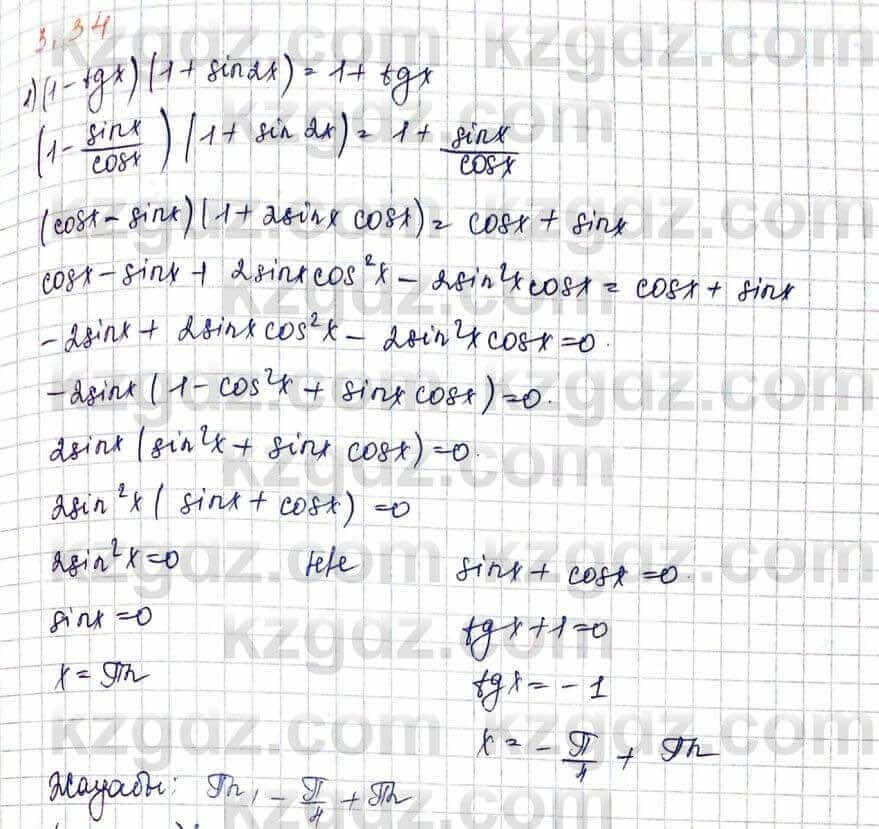 3.34
1) (1 - tgx)(1 + sin2x) = 1 + tgx
(1 - sinx/cosx)(1 + sin 2x) = 1 + sinx/cosx
(cosx - sinx)(1 + 2sinx cosx) = cosx + sinx
cosx - sinx + 2sinxcos²x - 2sin²xcosx = cosx + sinx
-2sinx + 2sinxcos²x - 2sin²xcosx = 0.
-2sinx(1 - cos²x + sinxcosx) = 0.
2sinx(sin²x + sinx cosx) = 0.
2sin²x(sinx + cosx) = 0
2sin²x = 0 н/е sinx + cosx = 0.
sinx = 0 tgx + 1 = 0
x = πn tgx = -1
x = -π/4 + πn
Жауабы: πn, -π/4 + πn
kzgdz.com